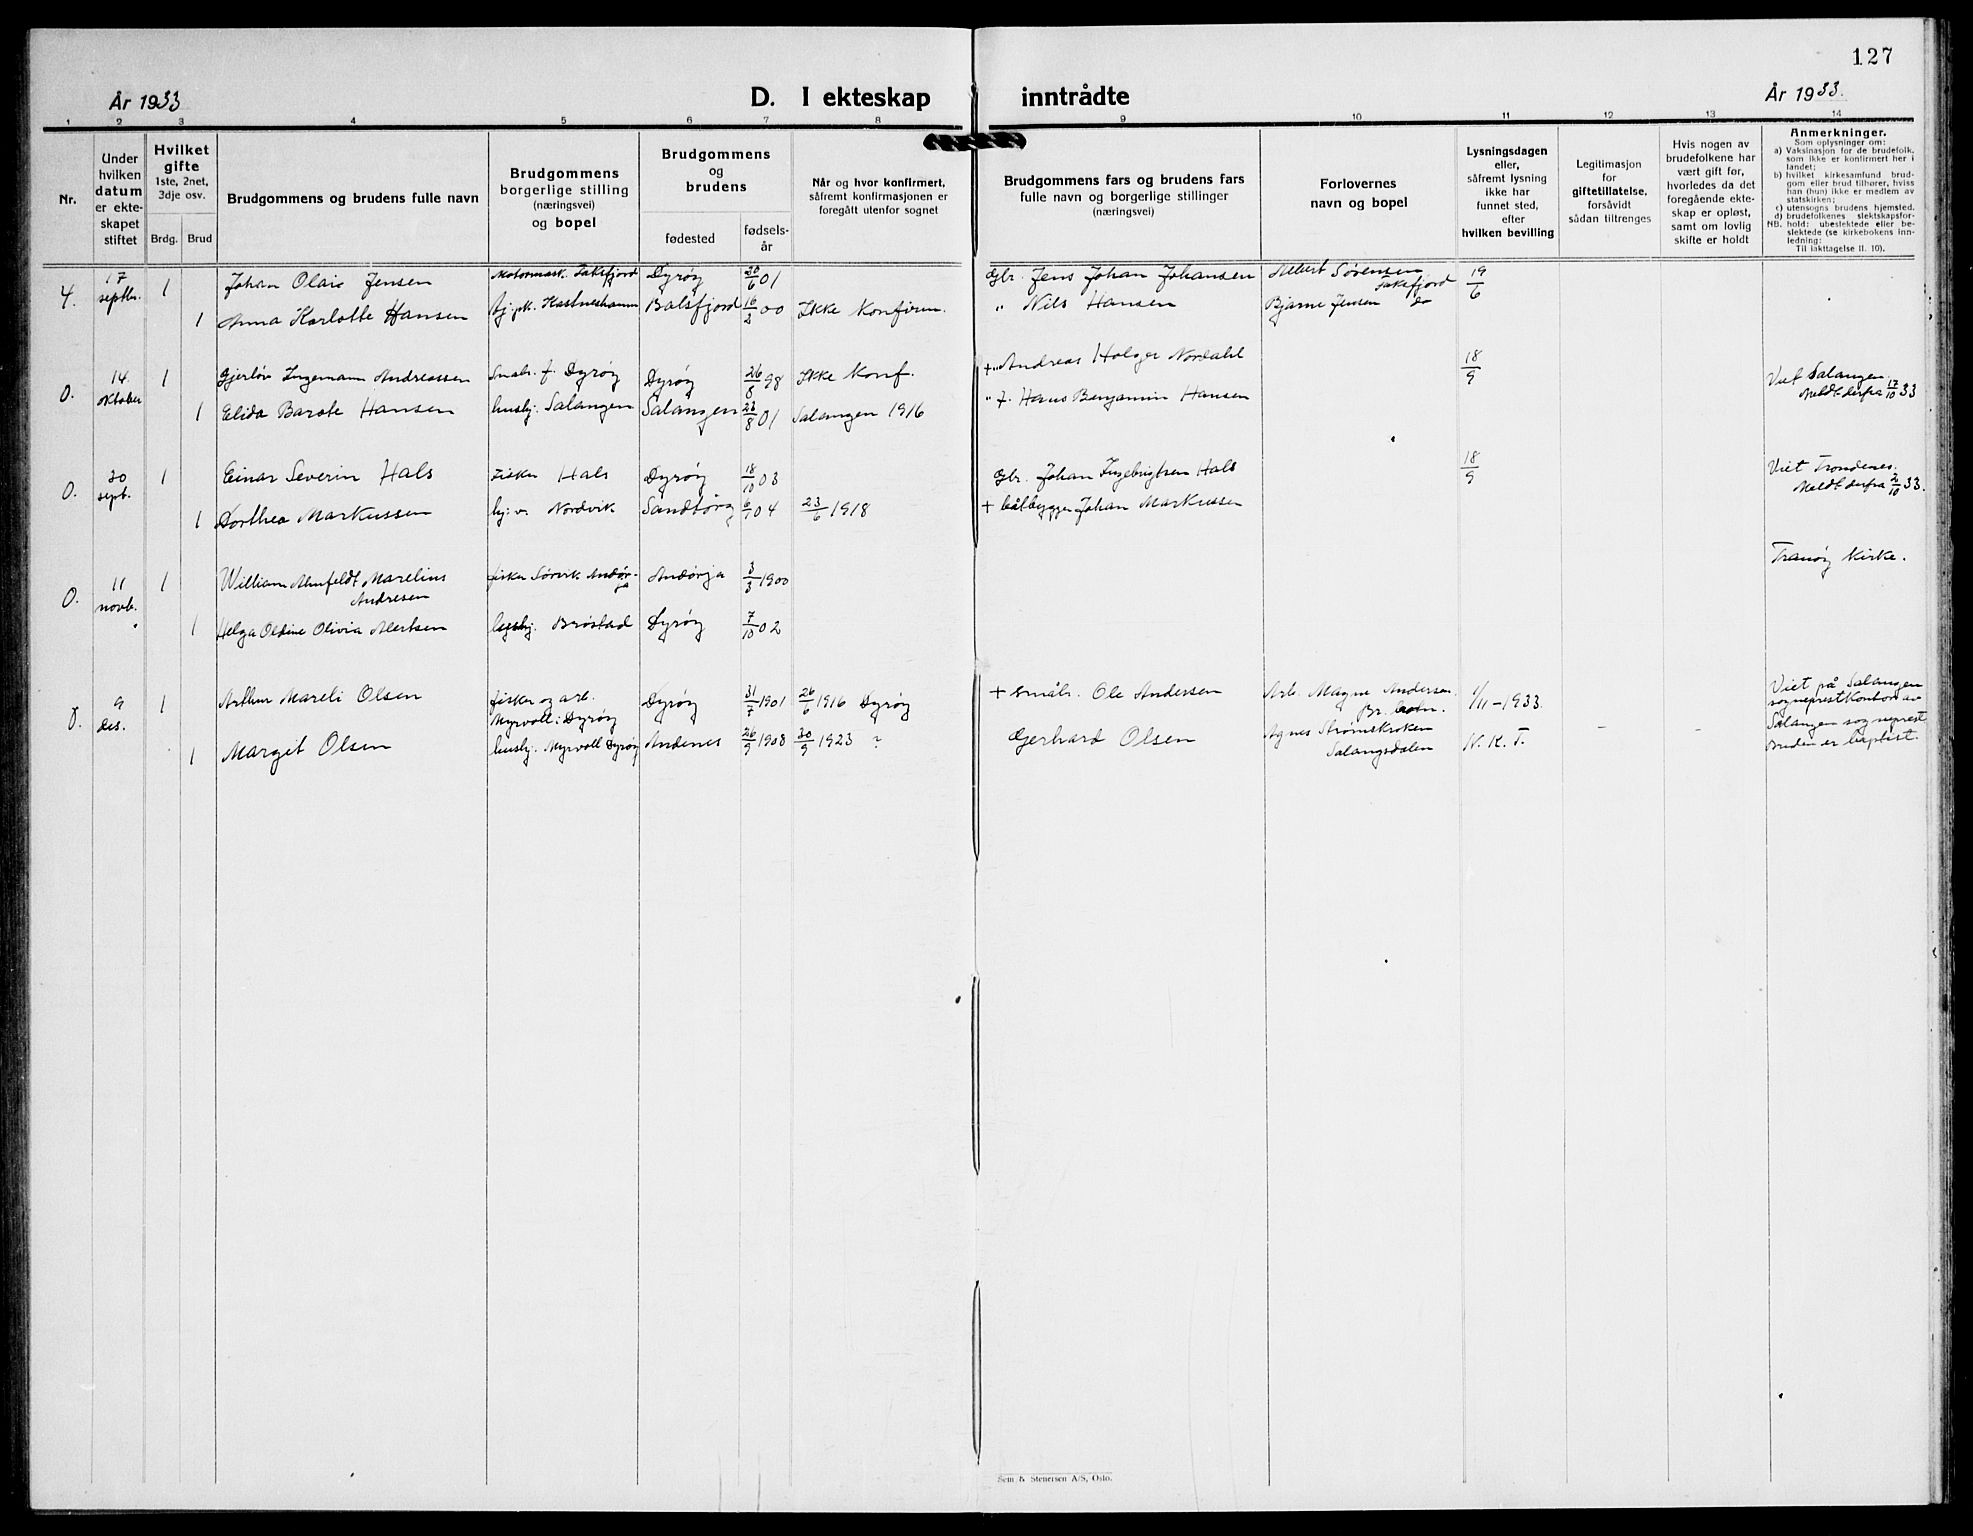 127
År 1933
D. I ekteskap inntrådte
År 1933.
1 2 3 4 5 6 7 8 9 10 11 12 13 14
Nr.
Under hvilken datum er ekteskapet stiftet
Hvilket gifte
1ste, 2net, 3dje osv.
Brdg. Brud
Brudgommens og brudens fulle navn
Brudgommens borgerlige stilling (næringsvei) og bopel
Brudgommens og brudens
fødested
fødselsår
Når og hvor konfirmert, såfremt konfirmasjonen er foregått utenfor sognet
Brudgommens fars og brudens fars fulle navn og borgerlige stillinger (næringsvei)
Forlovernes navn og bopel
Lysningsdagen eller, såfremt lysning ikke har funnet sted, efter hvilken bevilling
Legitimasjon for giftetillatelse, forsåvidt sådan tiltrenges
Hvis nogen av brudefolkene har vært gift før, hvorledes da det foregående ekteskap er opløst, samt om lovlig skifte er holdt
Anmerkninger.
Som oplysninger om:
a) Vaksinasjon for de brudefolk, som ikke er konfirmert her i landet;
b) hvilket kirkesamfund brudgom eller brud tilhører, hviss han (hun) ikke er medlem av statskirken;
c) utensogns brudens hjemsted.
d) brudefolkenes slektskapsforhold: ubeslektede eller beslektede (se kirkebokens innledning:
NB.
Til iakttagelse II. 10).
4. 17 septbr. 1 Johan Olais Jensen Motormask. Dyrøy 20/6 01 Gbr. Jens Johan Johansen Albert Sørensen 19/6
1 Anna Karlotte Hansen Balsfjord 16/2 00 Ikke Konfirm. " Nils Hansen Bjarne Jensen do
0. 14. oktober 1 Ingemann Andreassen Dyrøy Dyrøy 26/8 98 Ikke Konf. Andreas Holger Nordahl 18/9 Viet Salangen. Meldt derfra 17/10 33
1 Elida Hansen husbj. Salangen Salangen 23/8 01 Salangen 1916 " f. Hans Benjamin Hansen
0. 30 sept. 1 Einar Severin Hals Fisker Hals Dyrøy 18/10 03 Gbr. Johan Ingebrigtsen Hals 18/9 Viet Trondenes. Meldt derfra 2/10 33.
1 Dorthea Markussen Nordvik Sandtorg 6/1 04 23/6 1918 + båtbygger Johan Markussen
0. 11 novb. 1 William Marelius Andresen fisker Sørvik Andørja Andørja 3/3 1900 Tranøy Kirke.
1 Helga Oldine Olivia Brøstad Dyrøy 7/10 02
9 des. 1 Arthur Mareli Olsen fisker og arb. Myrvoll i Dyrøy Dyrøy 31/7 1901 26/6 1916 Dyrøy + småbr. Ole Andersen Arb. Magne Andersen 1/11-1933. Viet på Salangen sogneprestkontor av Salangen sogneprest
1 Margit Olsen husbj. Myrvoll Dyrøy Andenes 26/9 1908 30/9 1923 ? Gerhard Olsen Agnes Strømskroken Salangsdalen N. K. T. - - Bruden er baptist.
Sem & Stenersen A/S, Oslo.